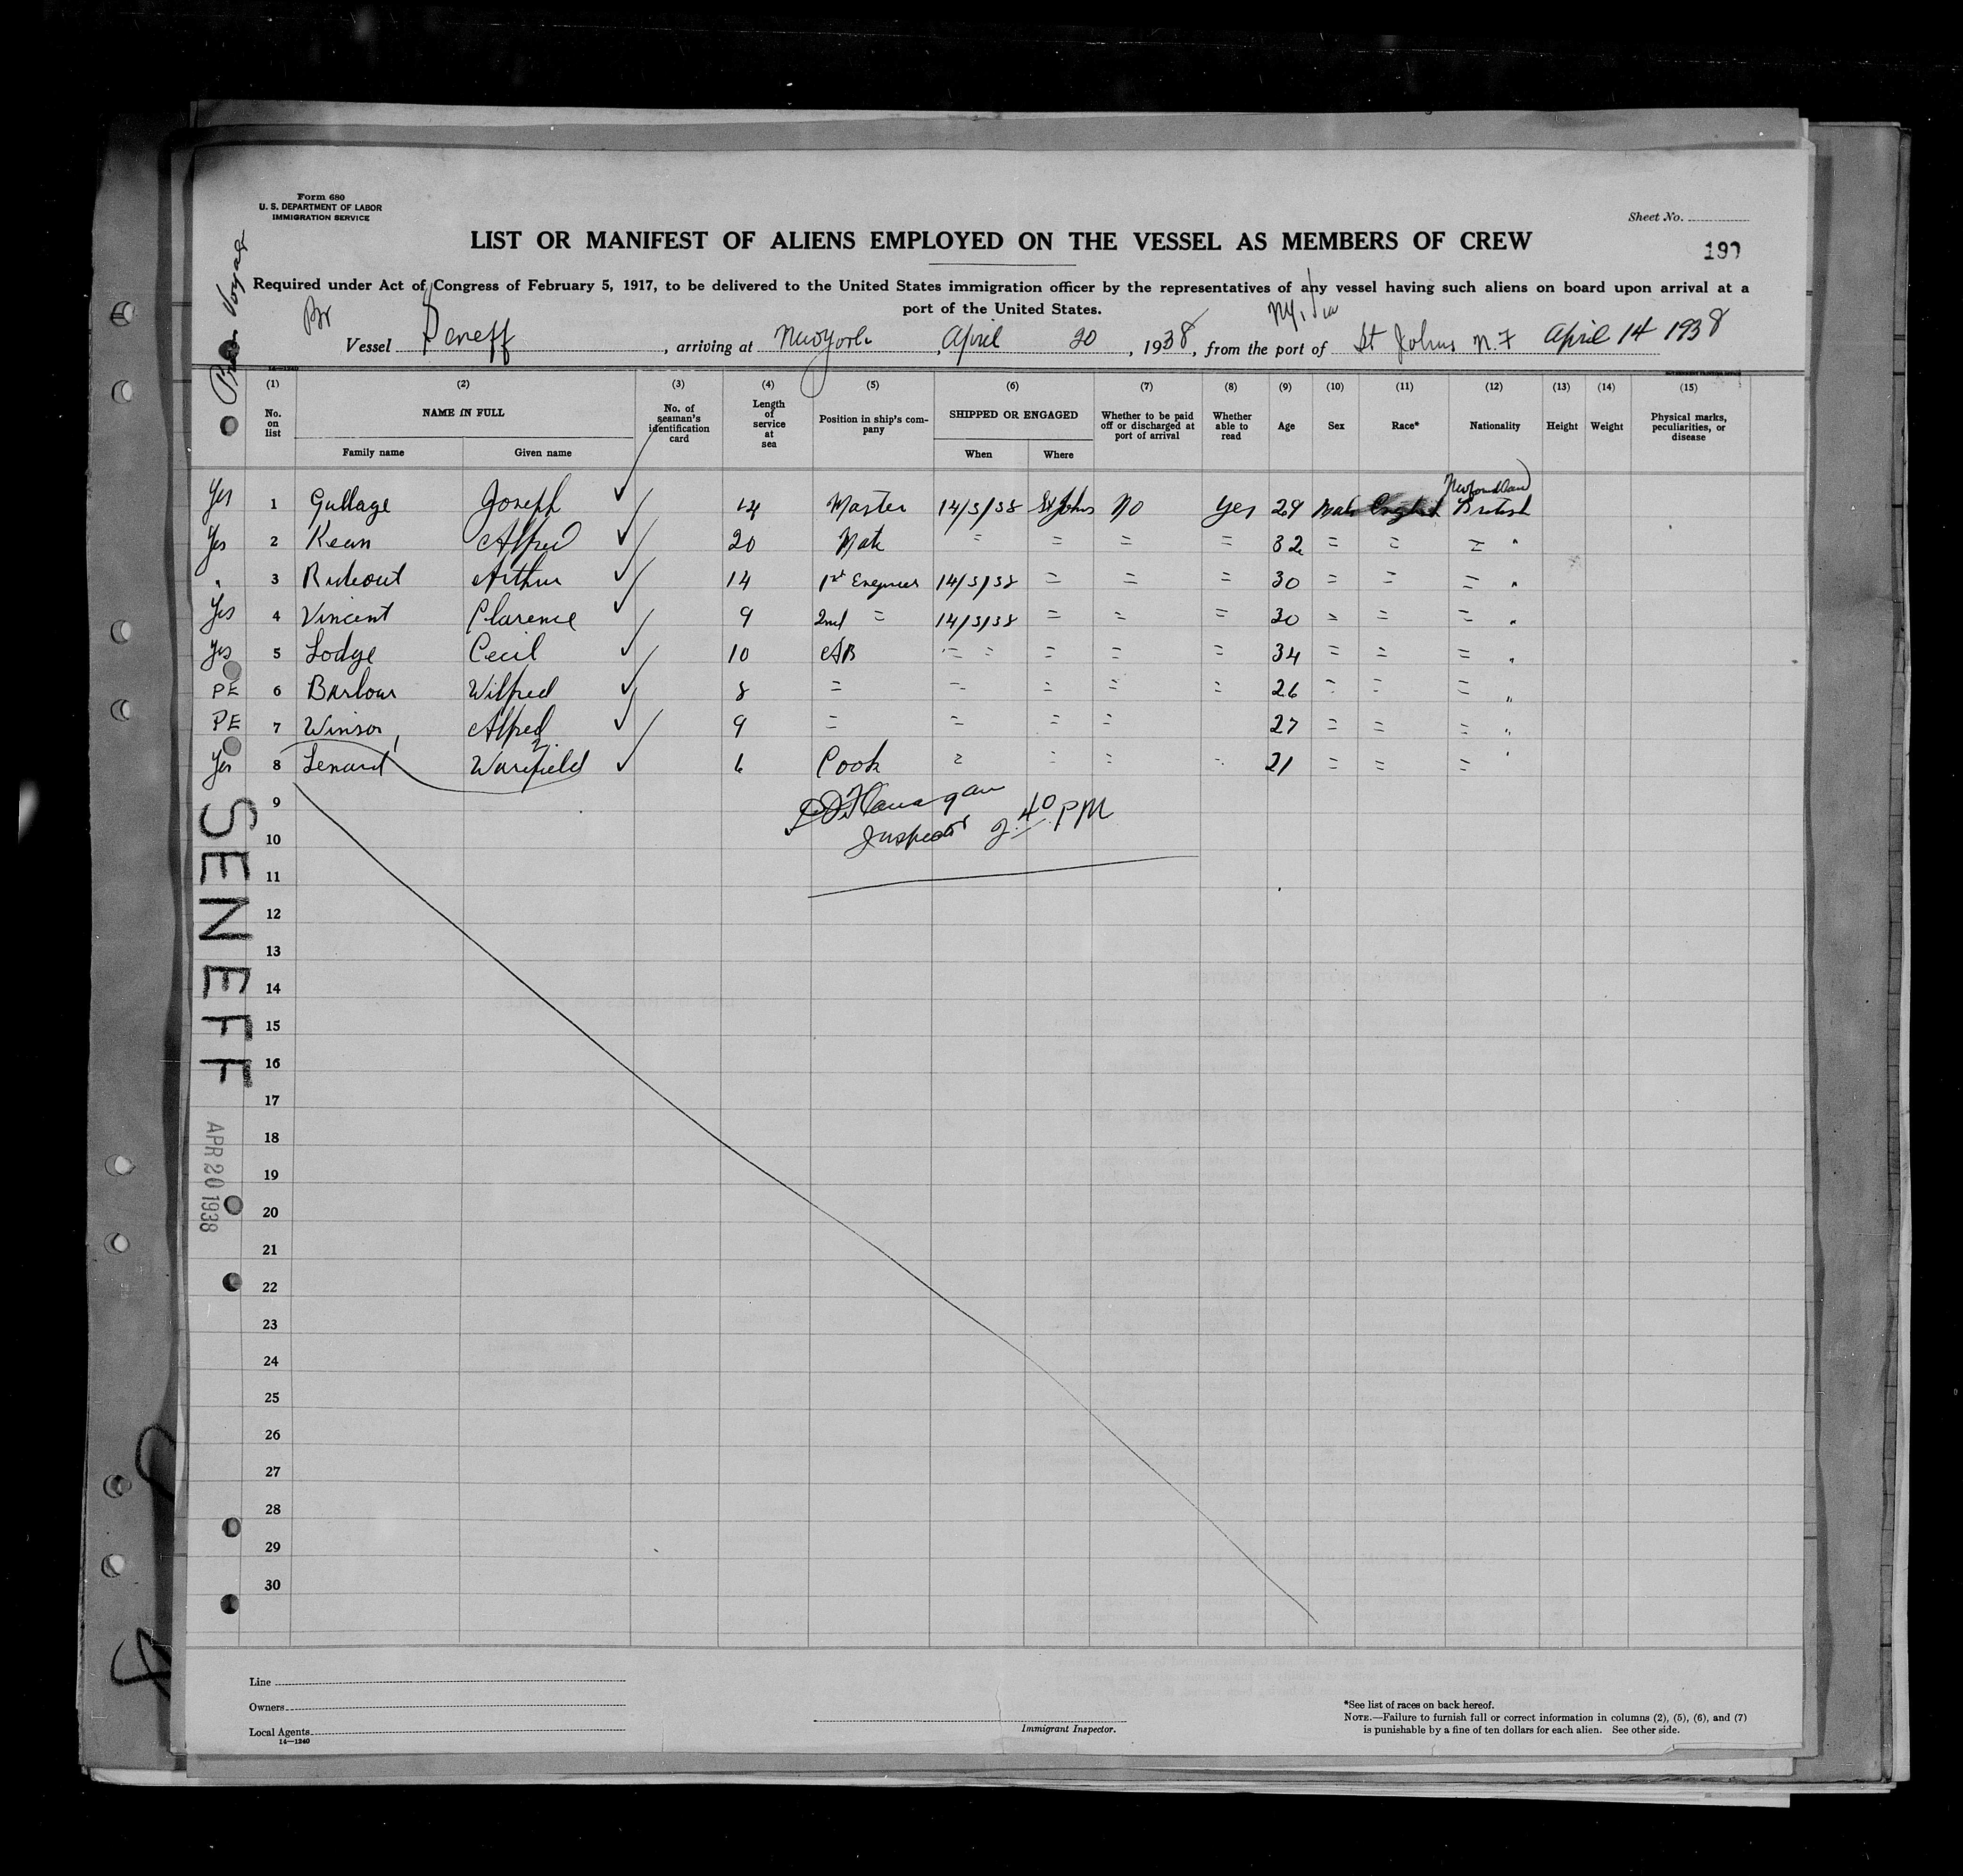 Form 680
U. S. DEPARTMENT OF LABOR
IMMIGRATION SERVICE
Sheet No.
LIST OR MANIFEST OF ALIENS EMPLOYED ON THE VESSEL AS MEMBERS OF CREW
Required under Act of Congress of February 5, 1917, to be delivered to the United States immigration officer by the representatives of any vessel having such aliens on board upon arrival at a
port of the United States.
Br
Vessel Seneff, arriving at New York, April 20, 1938, from the port of St Johns N.F April 14 1938
Voyage
(1) (2) (3) (4) (5) (6) (7) (8) (9) (10) (11) (12) (13) (14) (15)
No. on list NAME IN FULL No. of seaman's identification card Length of service at sea Position in ship's company SHIPPED OR ENGAGED Whether to be paid off or discharged at port of arrival Whether able to read Age Sex Race* Nationality Height Weight Physical marks, peculiarities, or disease
Family name Given name When Where
Newfoundland
Yes 1 Gullage Joseph ✓ 14 Master 14/3/38 St Johns No Yes 29 Male English British
Yes 2 Kean Alfred ✓ 20 Mate = = = = 32 = = = "
" 3 Rideout Arthur ✓ 14 1st Engineer 14/3/38 = = = 30 = = = "
Yes 4 Vincent Clarence ✓ 9 2nd = 14/3/38 = = = 30 = = = "
Yes 5 Lodge Cecil ✓ 10 AB = = = = = 34 = = = "
PE 6 Barbour Wilfred ✓ 8 = = = = = 26 = = = "
PE 7 Winsor Alfred ✓ 9 = = = = 27 = = = "
Yes 8 Lenard Warefield ✓ 6 Cook = = = = 21 = = = "
9
Flanagan
Inspector 2.40 PM
10
11
12
13
14
15
16
17
18
19
20
21
22
23
24
25
26
27
28
29
30
SENEFF
APR 20 1938
Line
Owners
Local Agents
14—1240
Immigrant Inspector.
*See list of races on back hereof.
NOTE.—Failure to furnish full or correct information in columns (2), (5), (6), and (7)
is punishable by a fine of ten dollars for each alien. See other side.